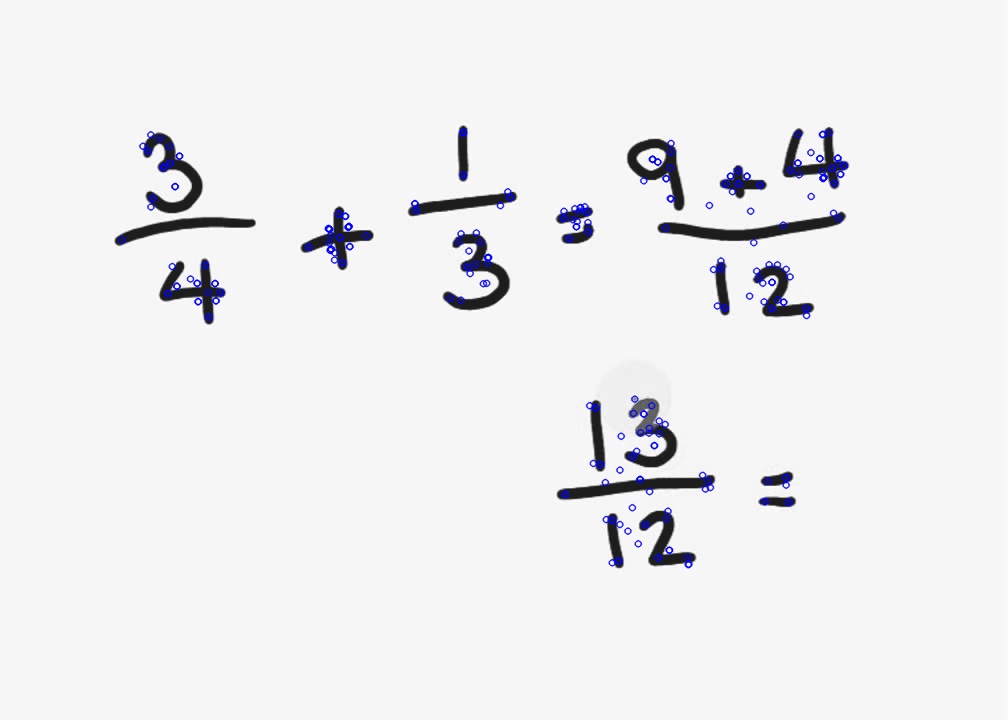 3/4 + 1/3 = 9+4/12
13/12 =